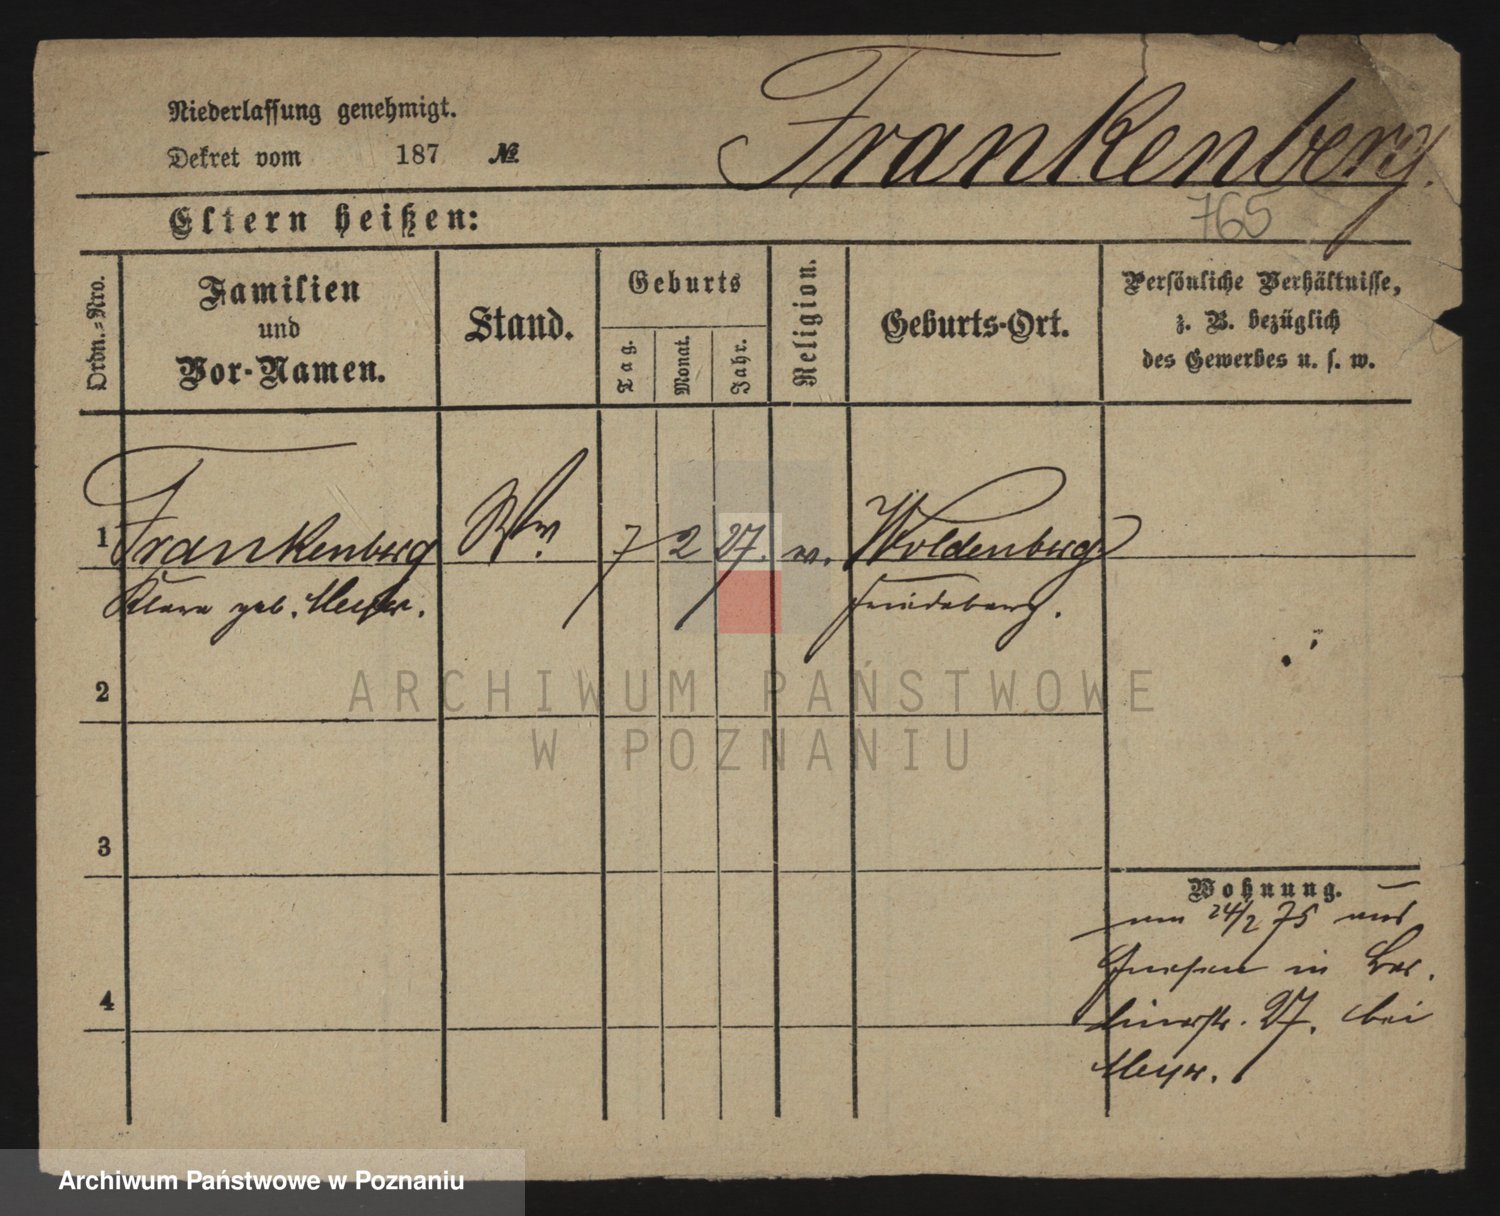 Niederlassung genehmigt.
Dekret vom 187 №
Frankenberg.
765
Eltern heißen:
Ordn.=Nro.
Familien
und
Vor-Namen.
Stand.
Geburts
Tag.
Monat.
Jahr.
Religion.
Geburts-Ort.
Persönliche Verhältnisse,
z. B. bezüglich
des Gewerbes u. s. w.
1 Frankenberg Ww. 7 2 27. m. Woldenberg
Klara geb. Meyer. Friedeberg.
2
3
4
Wohnung.
24/2 75 aus
Gnesen in Ber.
linerstr. 27. bei
Meyer.
ARCHIWUM PAŃSTWOWE
W POZNANIU
Archiwum Państwowe w Poznaniu